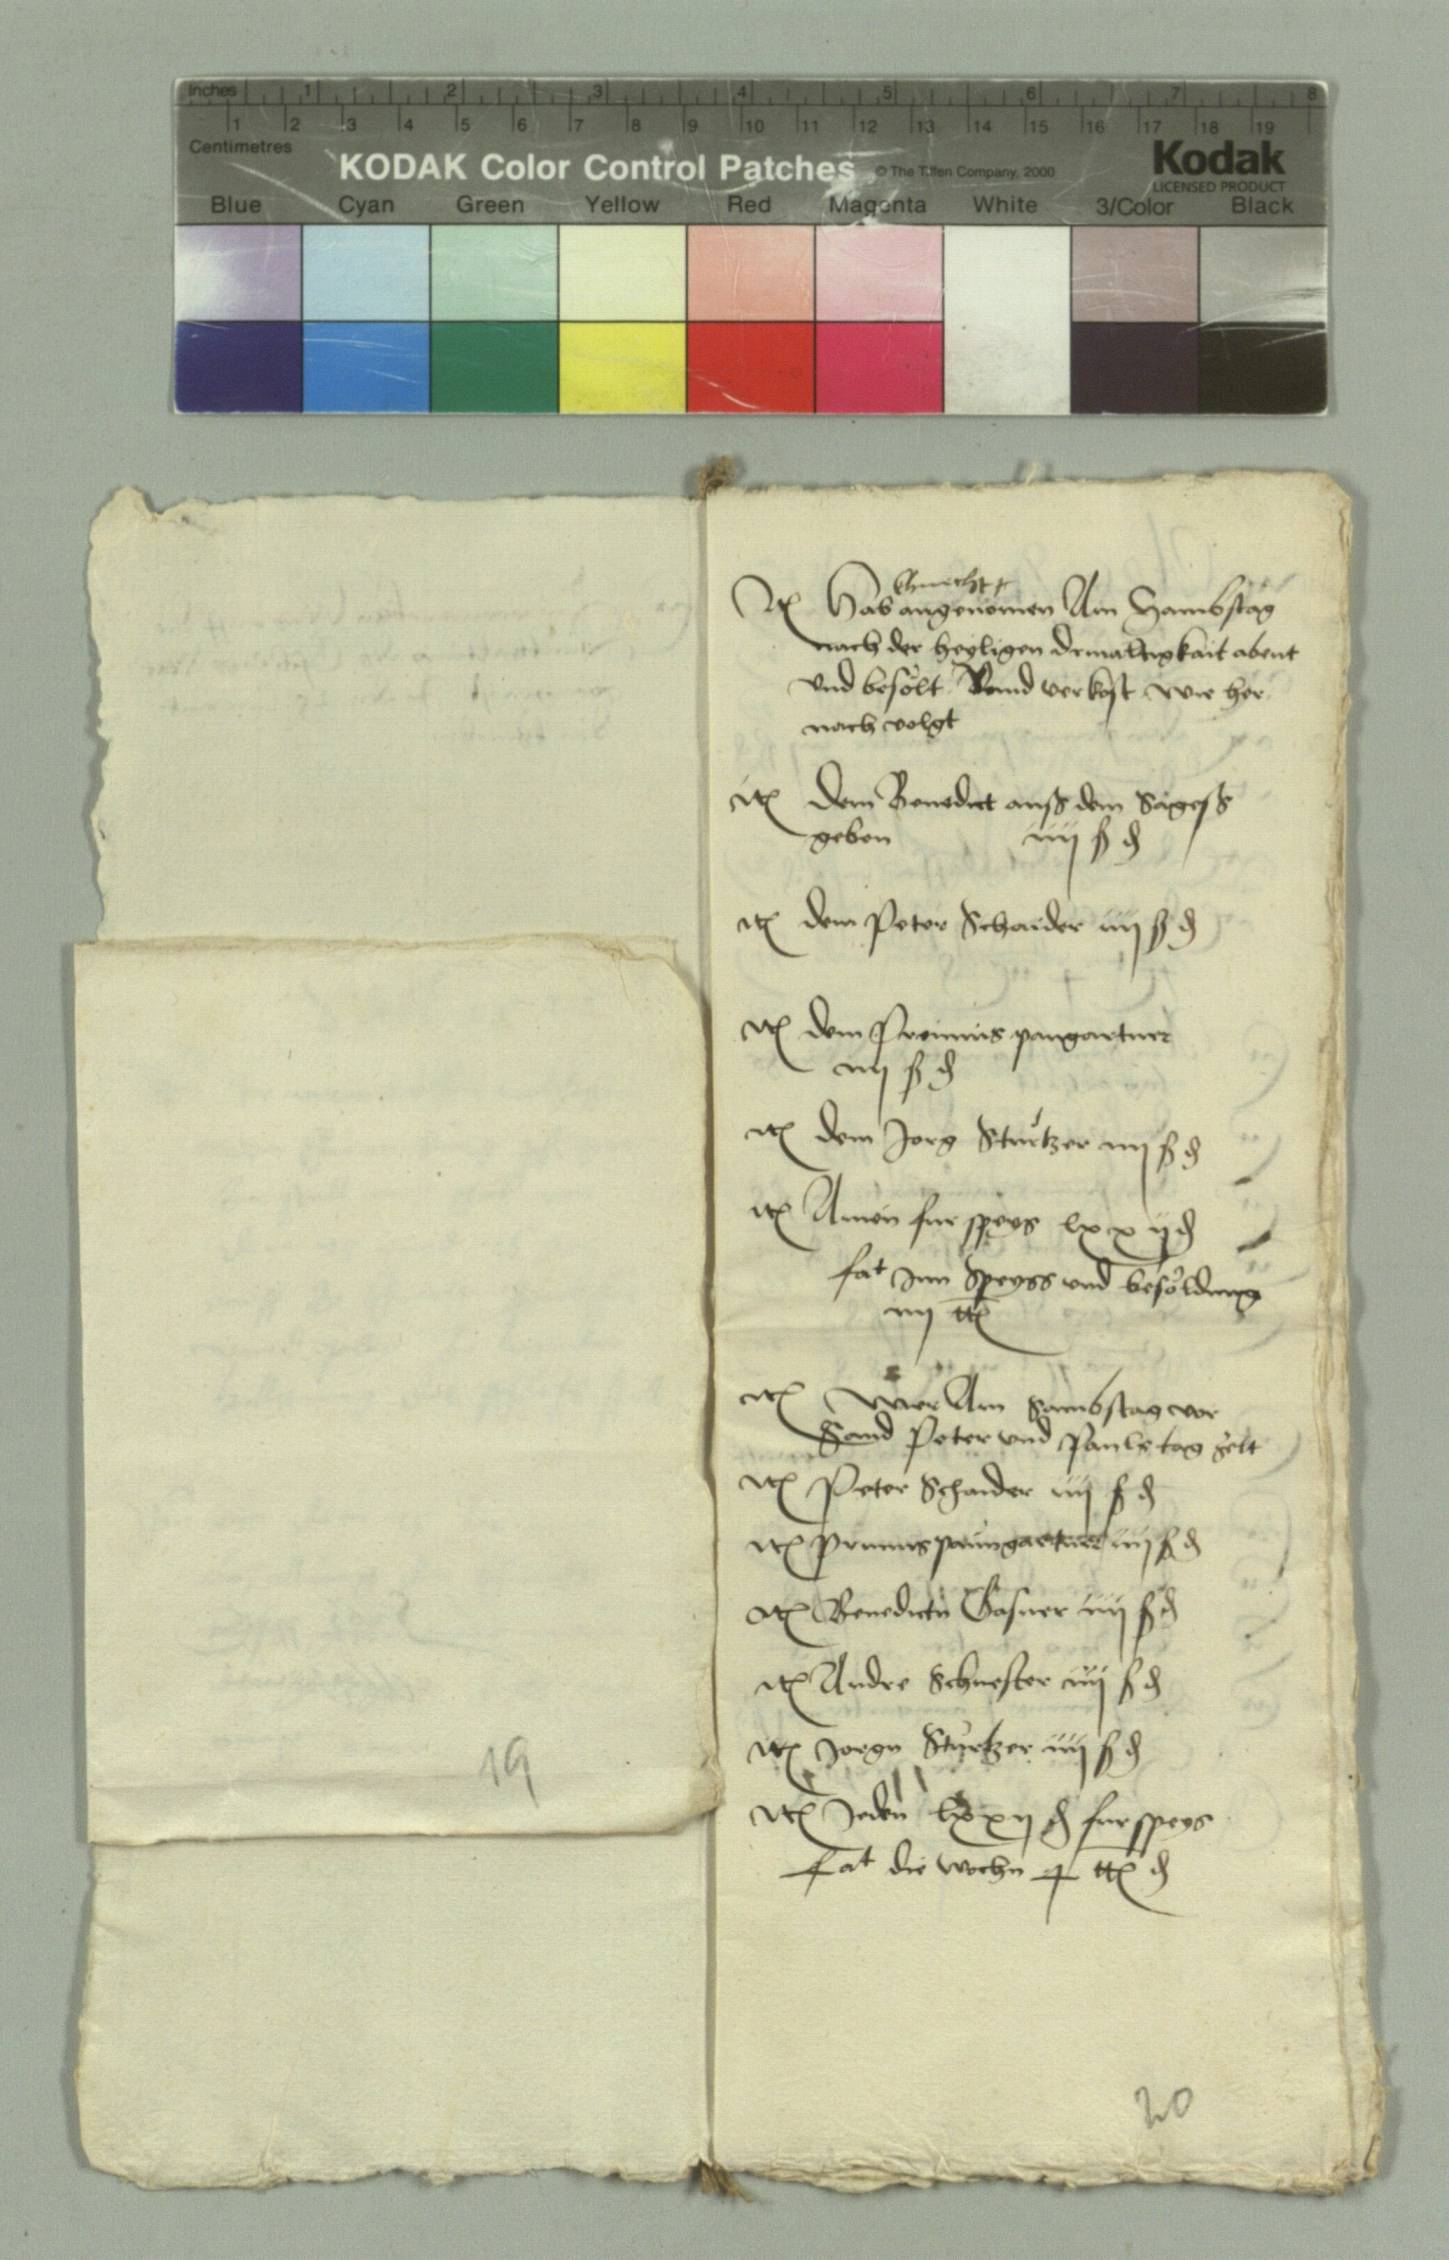 Inches 1 2 3 4 5 6 7 8
1 2 3 4 5 6 7 8 9 10 11 12 13 14 15 16 17 18 19
Centimetres
KODAK Color Control Patches © The Tiffen Company, 2000 Kodak
LICENSED PRODUCT
Blue Cyan Green Yellow Red Magenta White 3/Color Black
19
knecht
Itē Hab angenomen Am Sambstag
nach der heyligen drinaltigkait abent
vnd besölt vnd verkost wie her
nach volgt
itē dem Benedict auß dem
geben iiij ß ₰
itē dem Peter Schaider iiij ß ₰
itē dem Primus paugartner
iiij ß ₰
itē dem Jorg Sturtzer iiij ß ₰
itē fur speys lxxij ₰
fat Inn Speyss vnd besöldung
iiij
itē Am Sambstag vor
Sand Peter vnd Pauls tag
itē Peter Schaider iiij ß ₰
itē primus paungartner iiij ß ₰
itē Benedictn Gasner iiij ß ₰
itē Andre Schuester iiij ß ₰
itē Jorgn Stürtzer iiij ß ₰
itē Jedn lxxij ₰ fur speys
fat die wochn ₰
20